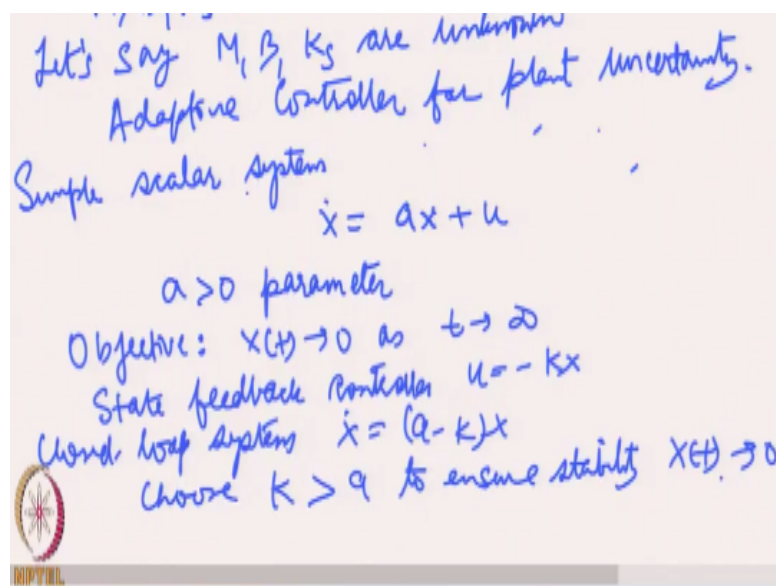 Let's say M, B, Ks are unknown
Adaptive Controller for plant uncertainty.
Simple scalar system
ẋ = ax + u
a > 0 parameter
Objective: x(t) → 0 as t → ∞
State feedback controller u = - kx
Closed loop system ẋ = (a - k)x
choose k > a to ensure stability x(t) → 0
NPTEL